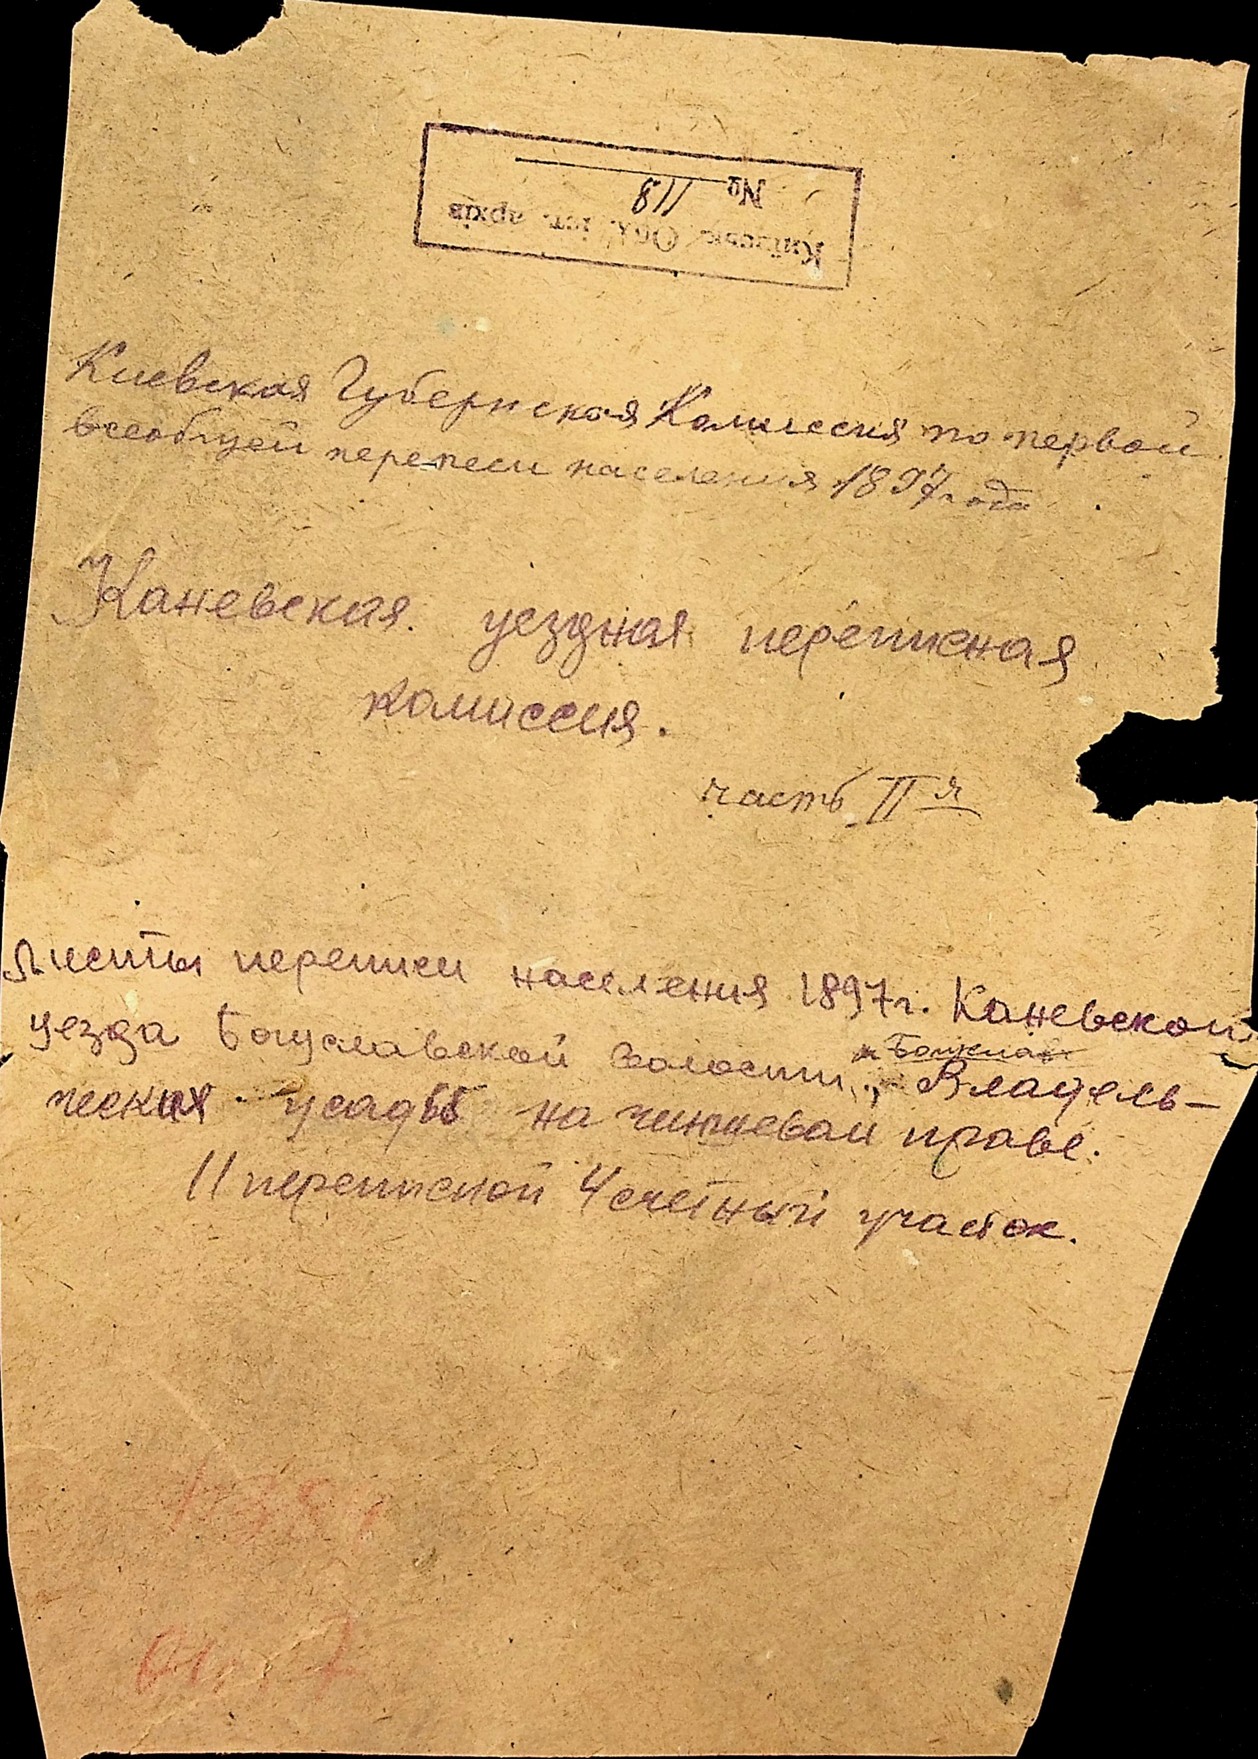 Київськ. Обл. іст. архів
№ 118
Киевская Губернская Комиссия по первой
всеобщей переписи населения 1897 года
Каневская уездная переписная
комиссия.
часть II я
Листы переписи населения 1897 г. Каневского
уезда Богуславской волости, Владель-
ческих усадьб на чиншевом праве.
II переписной 4 счетный участок.